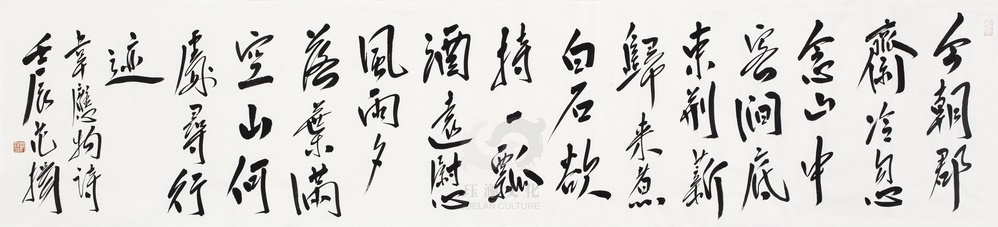 今朝郡
齋冷忽
念山中
客澗底
束荊薪
歸来煮
白石欲
持一瓢
酒遠慰
風雨夕
落葉滿
空山何
處尋行
迹
韋應物詩
壬辰范
JUELAN CULTURE